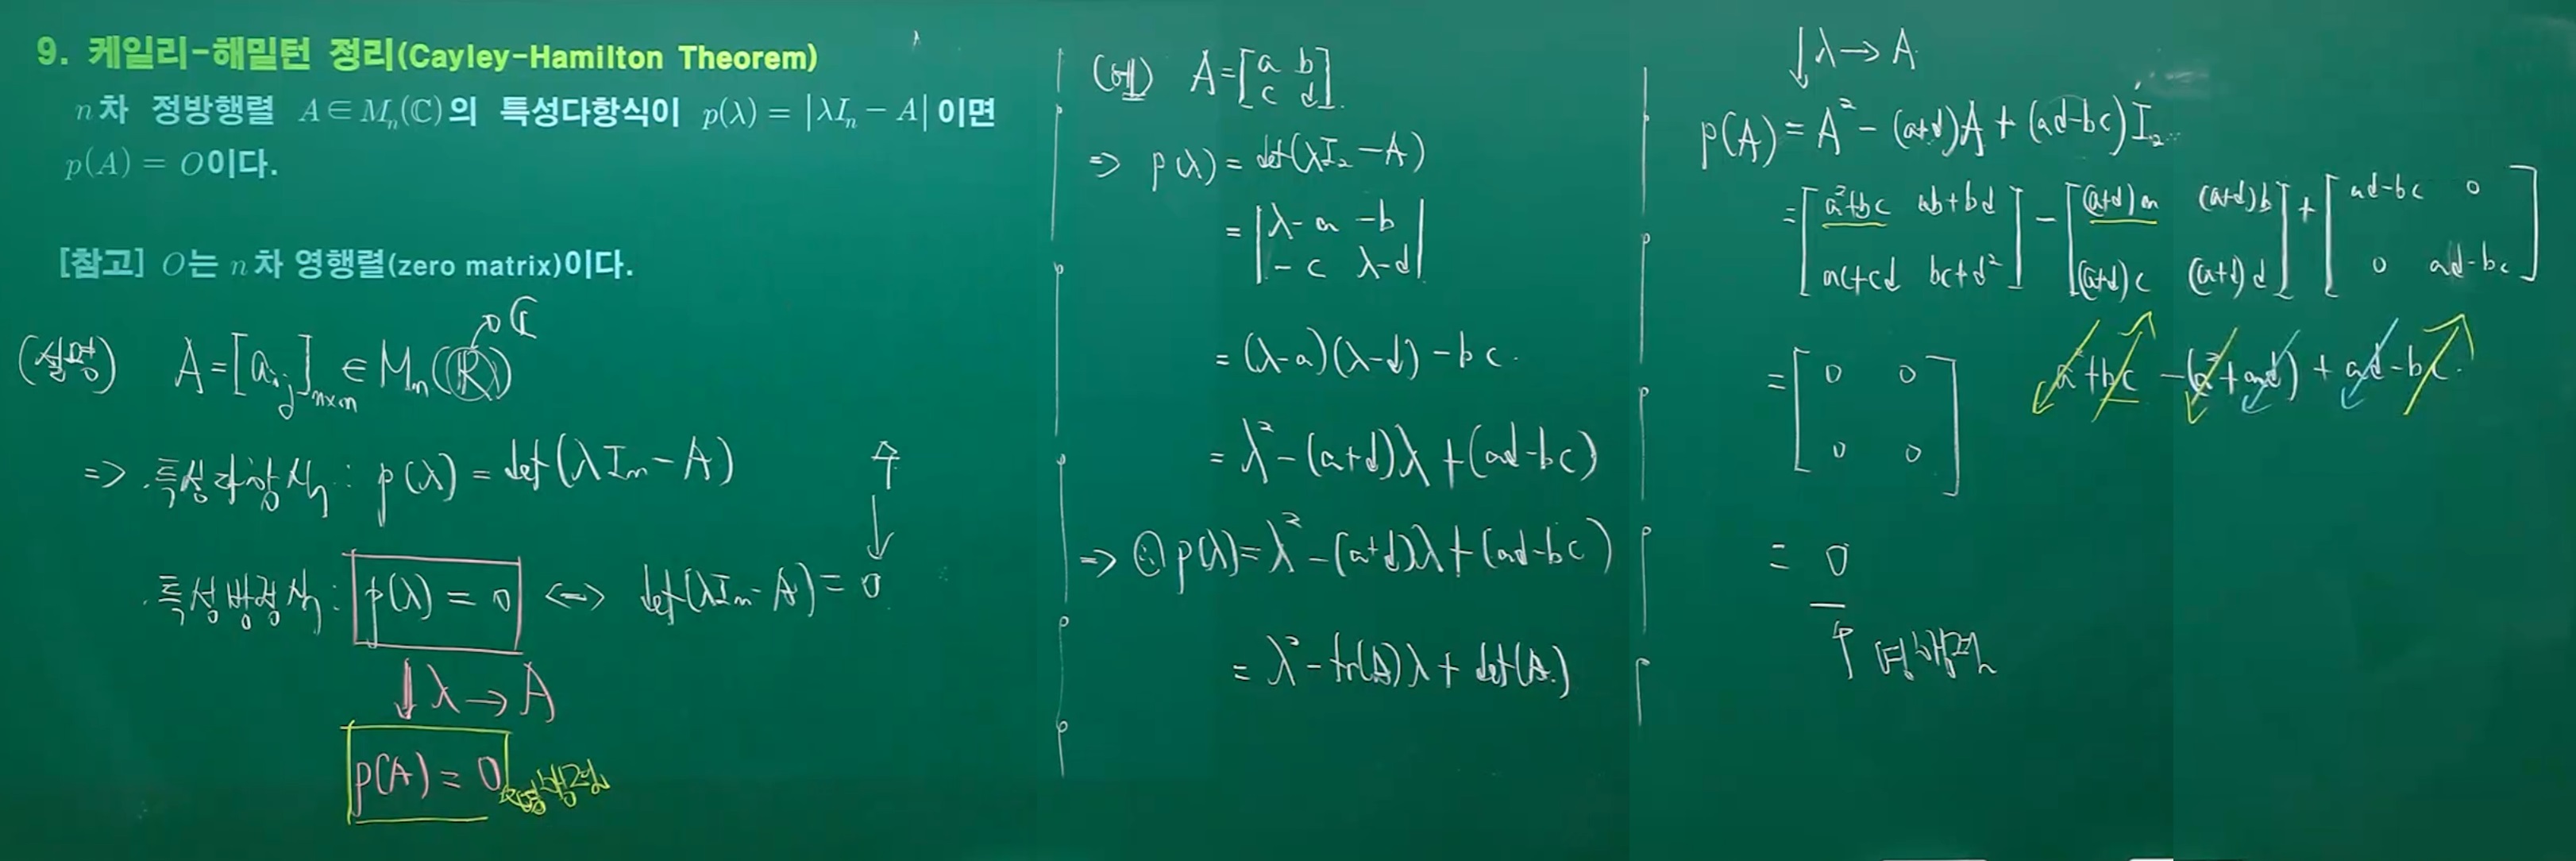 9. 케일리-해밀턴 정리(Cayley-Hamilton Theorem)
n차 정방행렬 A∈Mₙ(ℂ)의 특성다항식이 p(λ) = |λIₙ − A| 이면
p(A) = O이다.
[참고] O는 n차 영행렬(zero matrix)이다.
(설명) A=[aᵢⱼ]ₙₓₙ ∈ Mₙ(ℝ) → ℂ
=> 특성다항식 : p(λ) = det(λIₙ − A)
수
↓
특성방정식 : p(λ) = 0 <=> det(λIₙ − A) = 0
↓ λ → A
p(A) = O 영행렬
(예) A=[a b
c d].
=> p(λ) = det(λI₂ − A)
= |λ−a −b
−c λ−d|
= (λ−a)(λ−d) − bc.
= λ² − (a+d)λ + (ad−bc)
=> ∴ p(λ) = λ² − (a+d)λ + (ad−bc)
= λ² − tr(A)λ + det(A)
↓ λ → A
p(A) = A² − (a+d)A + (ad−bc)I₂
= [a²+bc ab+bd] − [(a+d)a (a+d)b] + [ad−bc 0
ac+cd bc+d²] [(a+d)c (a+d)d] 0 ad−bc]
= [0 0 a²+bc −(a²+ad) + ad−bc.
0 0]
= O
↑ 영행렬